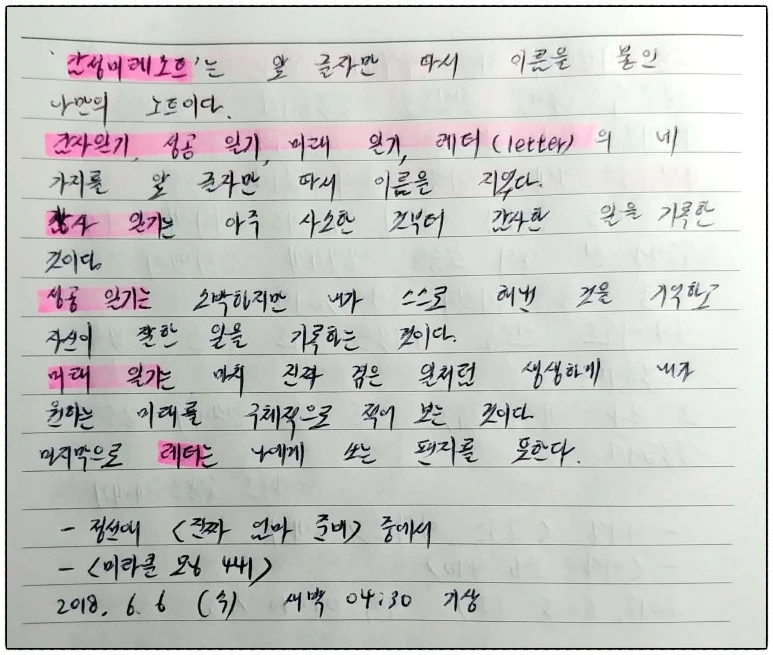 '감성미레노트'는 앞 글자만 따서 이름을 붙인
나만의 노트이다.
감사일기, 성공 일기, 미래 일기, 레터(letter)의 네
가지를 앞 글자만 따서 이름을 지었다.
감사 일기는 아주 사소한 것부터 감사한 일을 기록한
것이다.
성공 일기는 소박하지만 내가 스스로 해낸 것을 기억하고
자신이 잘한 일을 기록하는 것이다.
미래 일기는 마치 진짜 겪은 일처럼 생생하게 내가
원하는 미래를 구체적으로 적어 보는 것이다.
마지막으로 레터는 나에게 쓰는 편지를 뜻한다.
- 정선애 <진짜 엄마 준비> 중에서
- <미라클 모닝 44일>
2018. 6. 6 (수) 새벽 04:30 기상